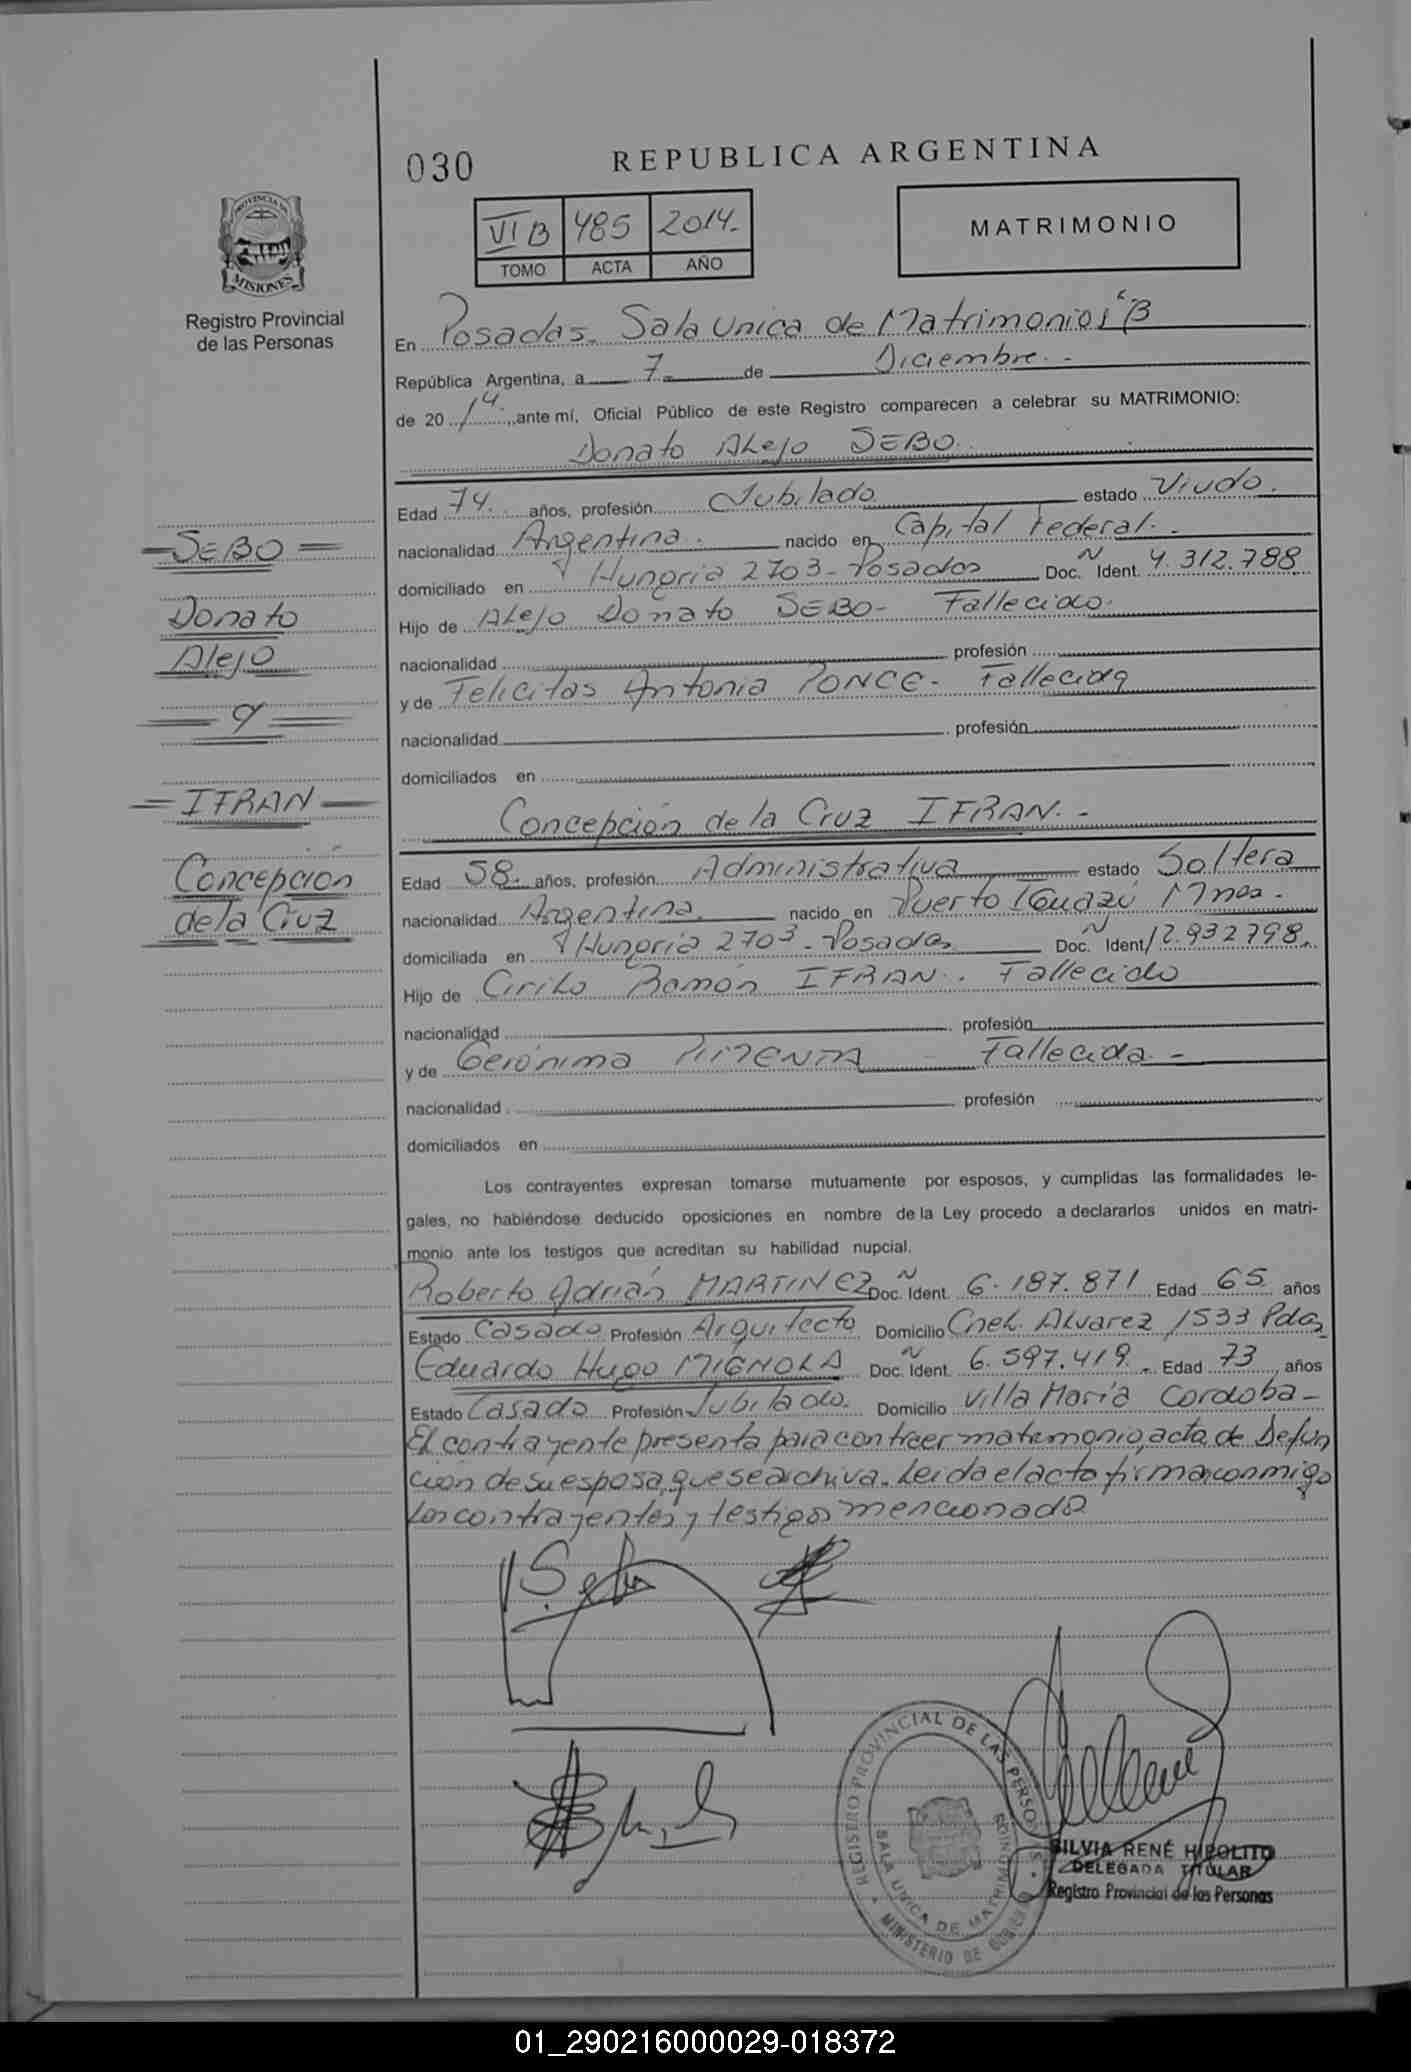 030
REPUBLICA ARGENTINA
PROVINCIA DE
MISIONES
Registro Provincial
de las Personas
VI B 485 2014.
TOMO ACTA AÑO
MATRIMONIO
En Posadas. Sala Unica de Matrimonios "B
República Argentina, a 7 de Diciembre.-
de 2014. ante mí, Oficial Público de este Registro comparecen a celebrar su MATRIMONIO:
Donato Alejo SEBO.
Edad 74. años, profesión Jubilado estado Viudo.
nacionalidad Argentina. nacido en Capital Federal.-
domiciliado en Hungria 2703 - Posadas Doc. Ident. 4.312.788
Hijo de Alejo Donato SEBO - Fallecido.
nacionalidad profesión
y de Felicitas Antonia PONCE - Fallecida
nacionalidad profesión
domiciliados en
Concepción de la Cruz IFRAN.-
Edad 58. años, profesión Administrativa estado Soltera
nacionalidad Argentina. nacido en Puerto Iguazú Mnes.
domiciliada en Hungria 2703 - Posadas Doc. Ident. 12.932.798.
Hijo de Cirilo Ramón IFRAN. Fallecido
nacionalidad profesión
y de Gerónima PIMENTA - Fallecida.-
nacionalidad profesión
domiciliados en
Los contrayentes expresan tomarse mutuamente por esposos, y cumplidas las formalidades le-
gales, no habiéndose deducido oposiciones en nombre de la Ley procedo a declararlos unidos en matri-
monio ante los testigos que acreditan su habilidad nupcial.
Roberto Adrián MARTINEZ Doc. Ident. 6.187.871 Edad 65 años
Estado Casado Profesión Arquitecto Domicilio Cnel. Alvarez 1533 Pdas
Eduardo Hugo MIGNOLA Doc. Ident. 6.597.419 Edad 73 años
Estado Casado Profesión Jubilado. Domicilio Villa María Cordoba-
El contrayente presenta para contraer matrimonio, acta de Defun
ción de su esposa, que se archiva. Leida el acta firman conmigo
los contrayentes y testigos mencionado
SEBO
Donato
Alejo
y
IFRAN
Concepción
de la Cruz
REGISTRO PROVINCIAL DE LAS PERSONAS
SALA UNICA DE MATRIMONIOS
MINISTERIO DE GOBIERNO
SILVIA RENÉ HIPOLITO
DELEGADA TITULAR
Registro Provincial de las Personas
01_290216000029-018372